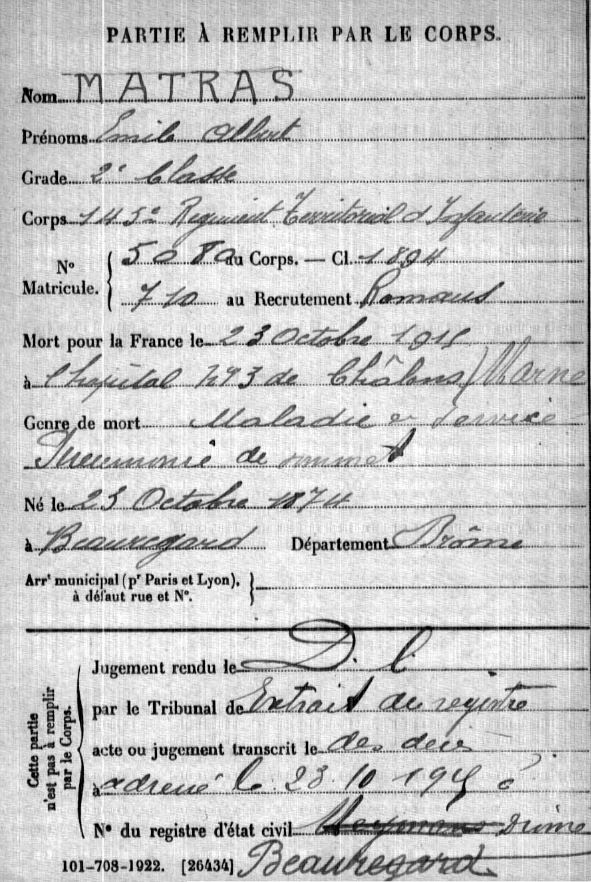 PARTIE À REMPLIR PAR LE CORPS.
Nom MATRAS
Prénoms Emile Albert
Grade 2e Classe
Corps 145e Régiment Territorial d'Infanterie
No Matricule. { 5080 au Corps. — Cl. 1894
710 au Recrutement Romans
Mort pour la France le 23 Octobre 1915
à l'hôpital de Châlons (Marne
Genre de mort Maladie en Service
Pneumonie de sommet
Né le 23 Octobre 1874
à Beauregard Département Drôme
Arrt municipal (pr Paris et Lyon), à défaut rue et No. }
Cette partie n'est pas à remplir par le Corps.
Jugement rendu le D. C.
par le Tribunal de Extrait du registre
acte ou jugement transcrit le des décès
à adressé le 23 10 1915 à
No du registre d'état civil Drôme
101-708-1922. [26434] Beauregard